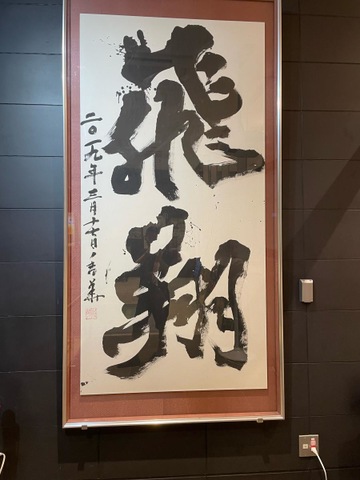 飛翔
二〇一九年三月十七日